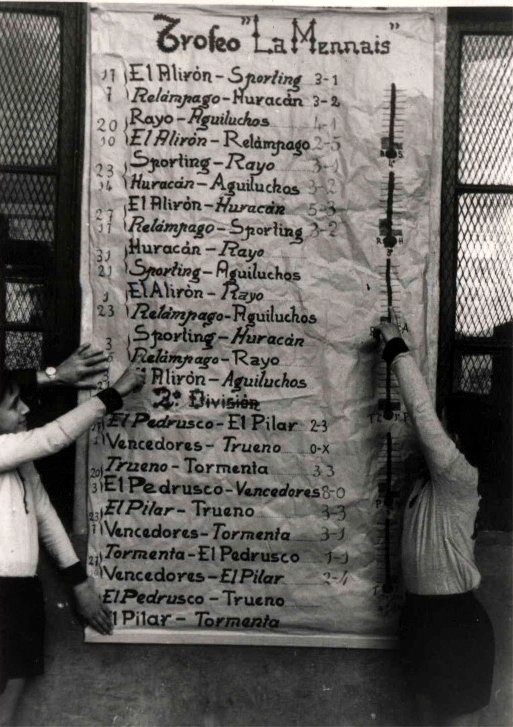 Trofeo "La Mennais"
17 El Alirón - Sporting 3-1
7 Relámpago - Huracán 3-2
Rayo - Aguiluchos 4-1
20 El Alirón - Relámpago 2-5
Sporting - Rayo
23 Huracán - Aguiluchos 3-2
El Alirón - Huracán 5-3
27 Relámpago - Sporting 3-2
Huracán - Rayo
21 Sporting - Aguiluchos
El Alirón - Rayo
23 Relámpago - Aguiluchos
3 Sporting - Huracán
Relámpago - Rayo
Alirón - Aguiluchos
2ª División
El Pedrusco - El Pilar 2-3
Vencedores - Trueno 0-X
Trueno - Tormenta 3 3
El Pedrusco - Vencedores 8-0
El Pilar - Trueno 3-3
Vencedores - Tormenta 3-1
Tormenta - El Pedrusco 1-1
Vencedores - El Pilar 2-4
El Pedrusco - Trueno
El Pilar - Tormenta